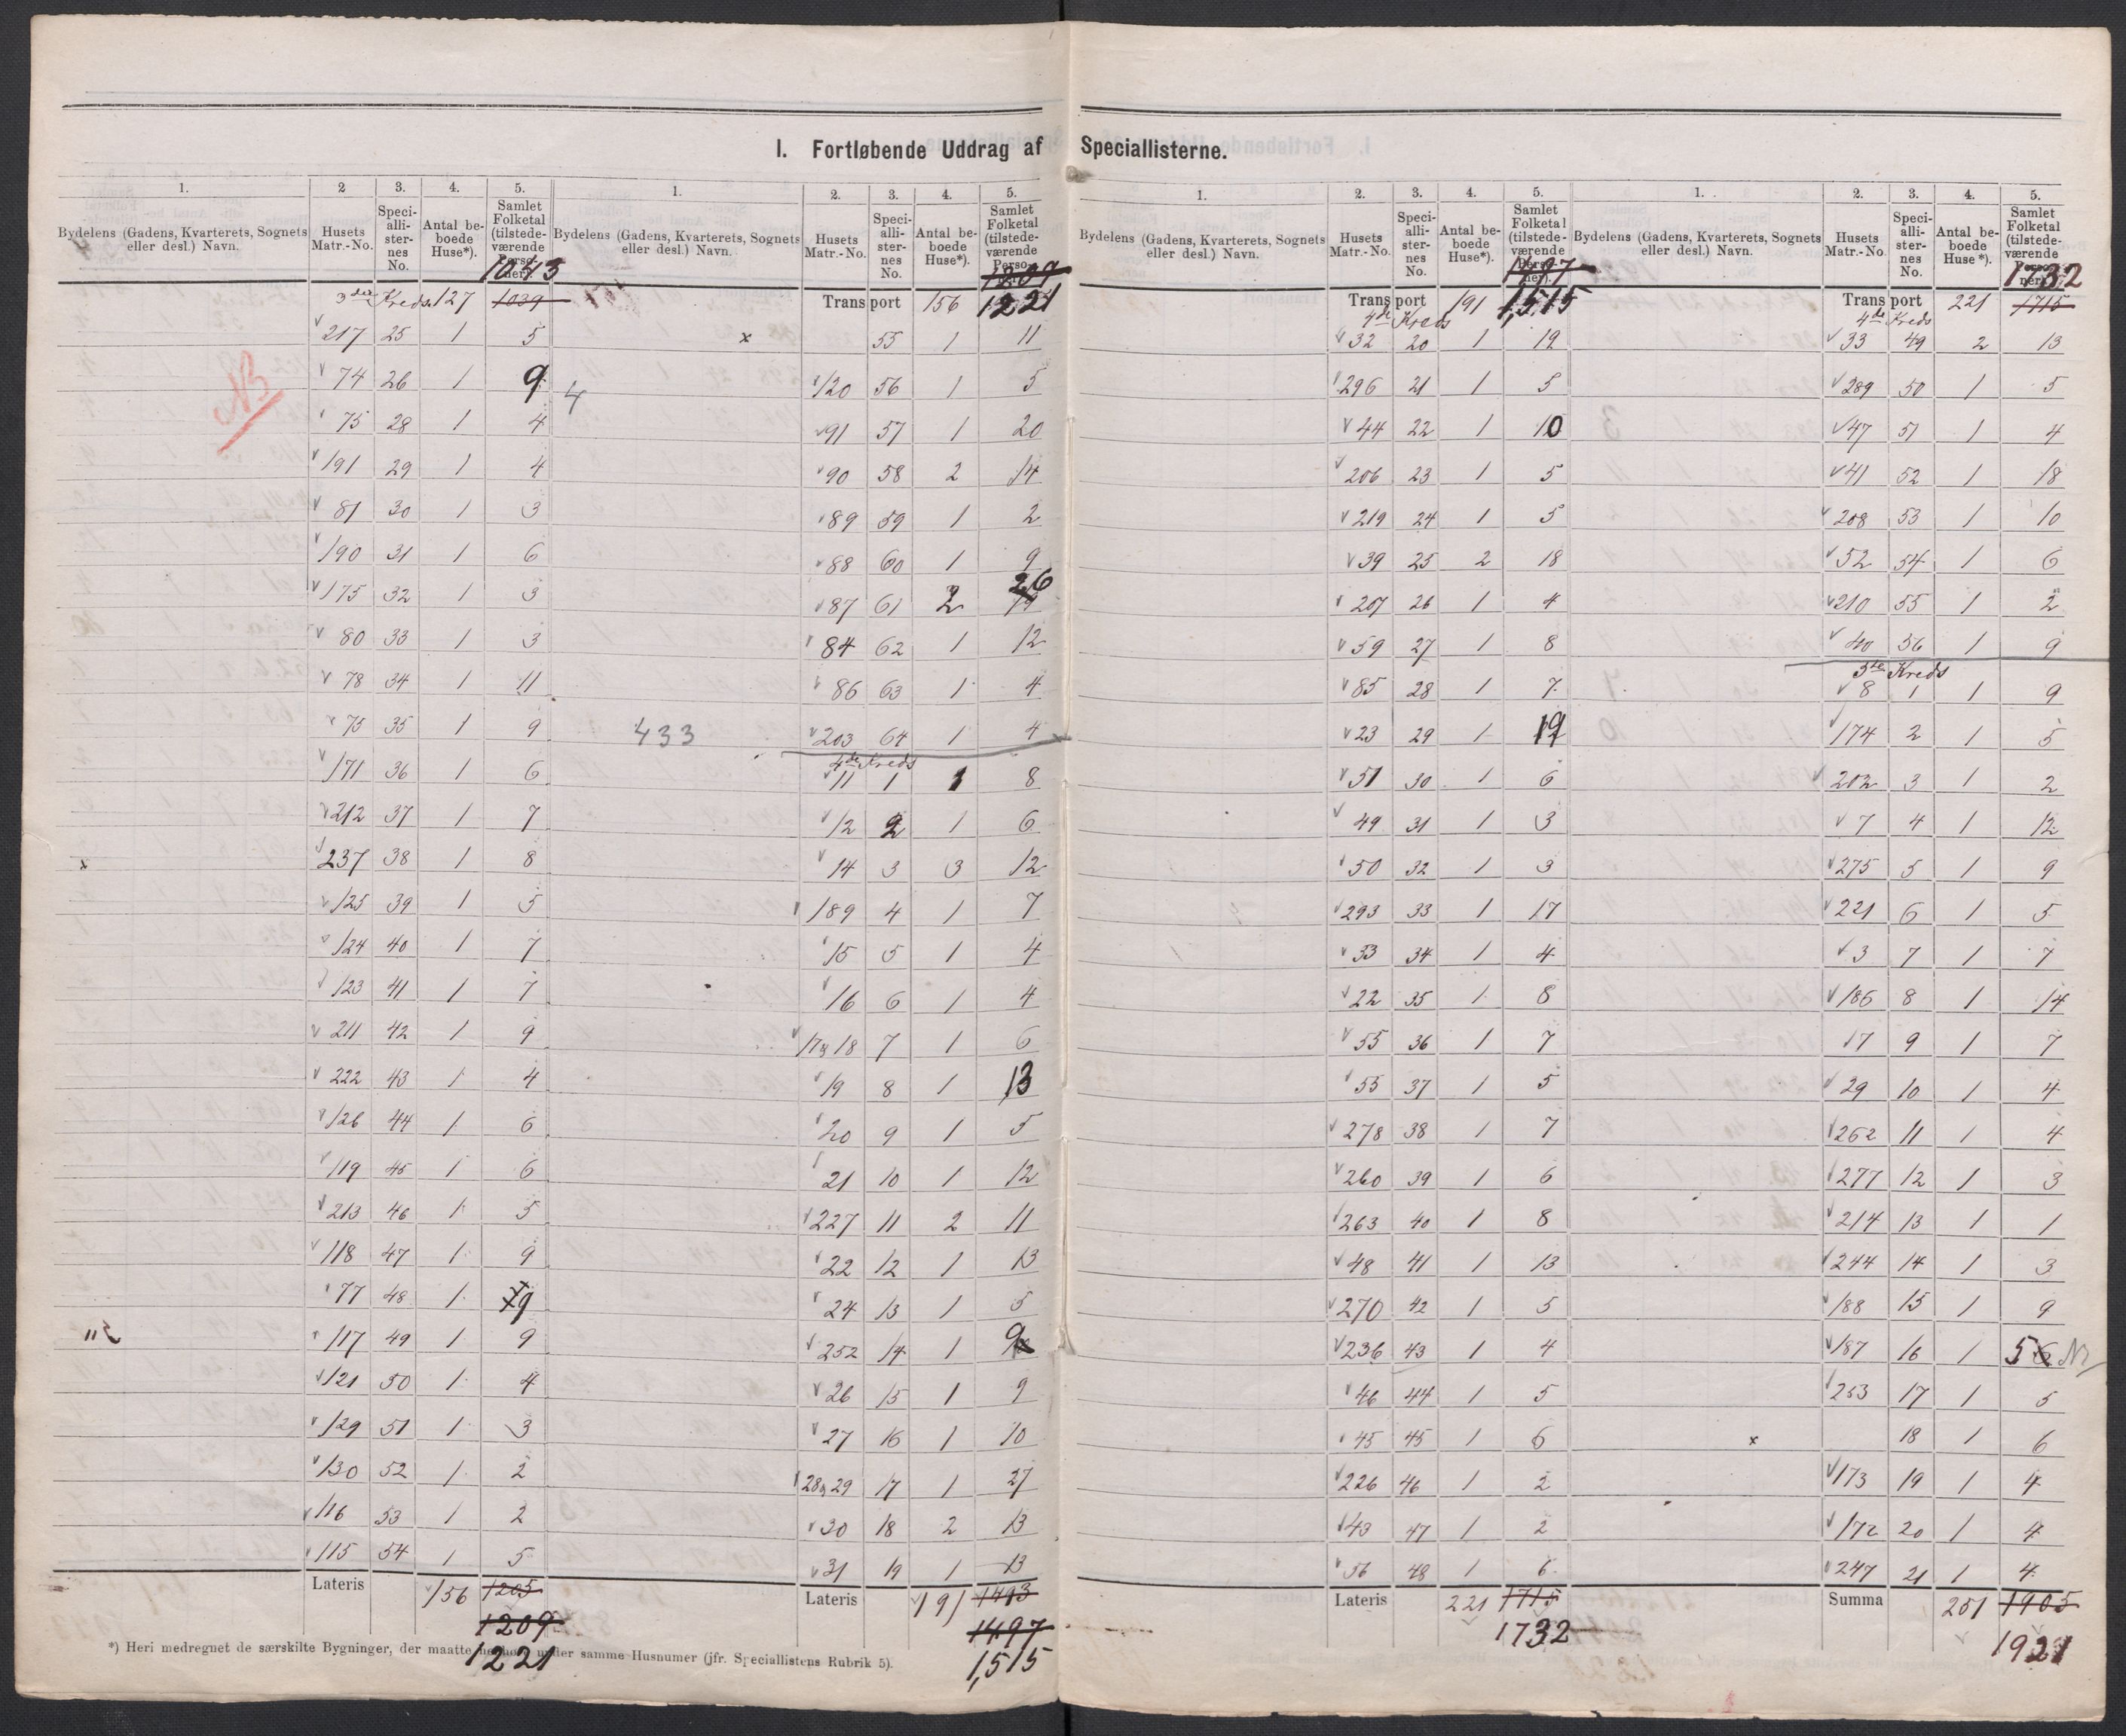 I. Fortløbende Uddrag af Speciallisterne.
1. 2 3. 4. 5.
Bydelens (Gadens, Kvarterets, Sognets eller desl.) Navn. Husets Matr.-No. Speci-alli-ster-nes No. Antal be-boede Huse*). Samlet Folketal (tilstede-værende Perso-ner).
1043
3die Kreds 127 1039
217 25 1 5
NB
74 26 1 9
75 28 1 4
191 29 1 4
81 30 1 3
190 31 1 6
175 32 1 3
80 33 1 3
78 34 1 11
75 35 1 9
171 36 1 6
212 37 1 7
x 237 38 1 8
125 39 1 5
124 40 1 7
123 41 1 7
211 42 1 9
222 43 1 4
126 44 1 6
119 45 1 6
213 46 1 5
118 47 1 9
77 48 1 7 9
117 49 1 9
121 50 1 4
129 51 1 3
130 52 1 2
116 53 1 2
115 54 1 5
Lateris 156 1205
1209
1221
*) Heri medregnet de særskilte Bygninger, der maatte under samme Husnumer (jfr. Speciallistens Rubrik 5).
1. 2. 3. 4. 5.
Bydelens (Gadens, Kvarterets, Sognets eller desl.) Navn. Husets Matr.-No. Speci-alli-ster-nes No. Antal be-boede Huse*). Samlet Folketal (tilstede-værende Perso-
1209
Transport 156 1221
x 55 1 11
4 120 56 1 5
91 57 1 20
90 58 2 14
89 59 1 2
88 60 1 9
87 61 2 26
84 62 1 12
86 63 1 4
433 203 64 1 4
4de Kreds
11 1 1 8
12 2 1 6
14 3 3 12
189 4 1 7
15 5 1 4
16 6 1 4
17 og 18 7 1 6
19 8 1 13
20 9 1 5
21 10 1 12
227 11 2 11
22 12 1 13
24 13 1 5
252 14 1 9
26 15 1 9
27 16 1 10
28 og 29 17 1 27
30 18 2 13
31 19 1 13
Lateris 191 1493
1497
1,515
1. 2. 3. 4. 5.
Bydelens (Gadens, Kvarterets, Sognets eller desl.) Navn. Husets Matr.-No. Speci-alli-ster-nes No. Antal be-boede Huse*). Samlet Folketal (tilstede-værende Perso-ner).
1497
Transport 191 1,515
4de Kreds
32 20 1 12
296 21 1 5
44 22 1 10
206 23 1 5
219 24 1 5
39 25 2 18
207 26 1 4
59 27 1 8
85 28 1 7
23 29 1 19
51 30 1 6
49 31 1 3
50 32 1 3
293 33 1 17
53 34 1 4
22 35 1 8
55 36 1 7
55 37 1 5
278 38 1 7
260 39 1 6
263 40 1 8
48 41 1 13
270 42 1 5
236 43 1 4
46 44 1 5
45 45 1 6
226 46 1 2
43 47 1 2
56 48 1 6
Lateris 221 1715
1732
1. 2. 3. 4. 5.
Bydelens (Gadens, Kvarterets, Sognets eller desl.) Navn. Husets Matr.-No. Speci-alli-ster-nes No. Antal be-boede Huse*). Samlet Folketal (tilstede-værende Perso-ner).
1732
Transport 221 1715
4de Kreds
33 49 2 13
289 50 1 5
47 51 1 4
41 52 1 18
208 53 1 10
52 54 1 6
210 55 1 2
40 56 1 9
5te Kreds
8 1 1 9
174 2 1 5
202 3 1 2
7 4 1 12
275 5 1 9
221 6 1 5
3 7 1 7
186 8 1 14
17 9 1 7
29 10 1 4
262 11 1 4
277 12 1 3
214 13 1 1
244 14 1 3
188 15 1 9
187 16 1 5 6
253 17 1 5
x 18 1 6
173 19 1 4
172 20 1 4
247 21 1 4
Summa 251 1905
1921